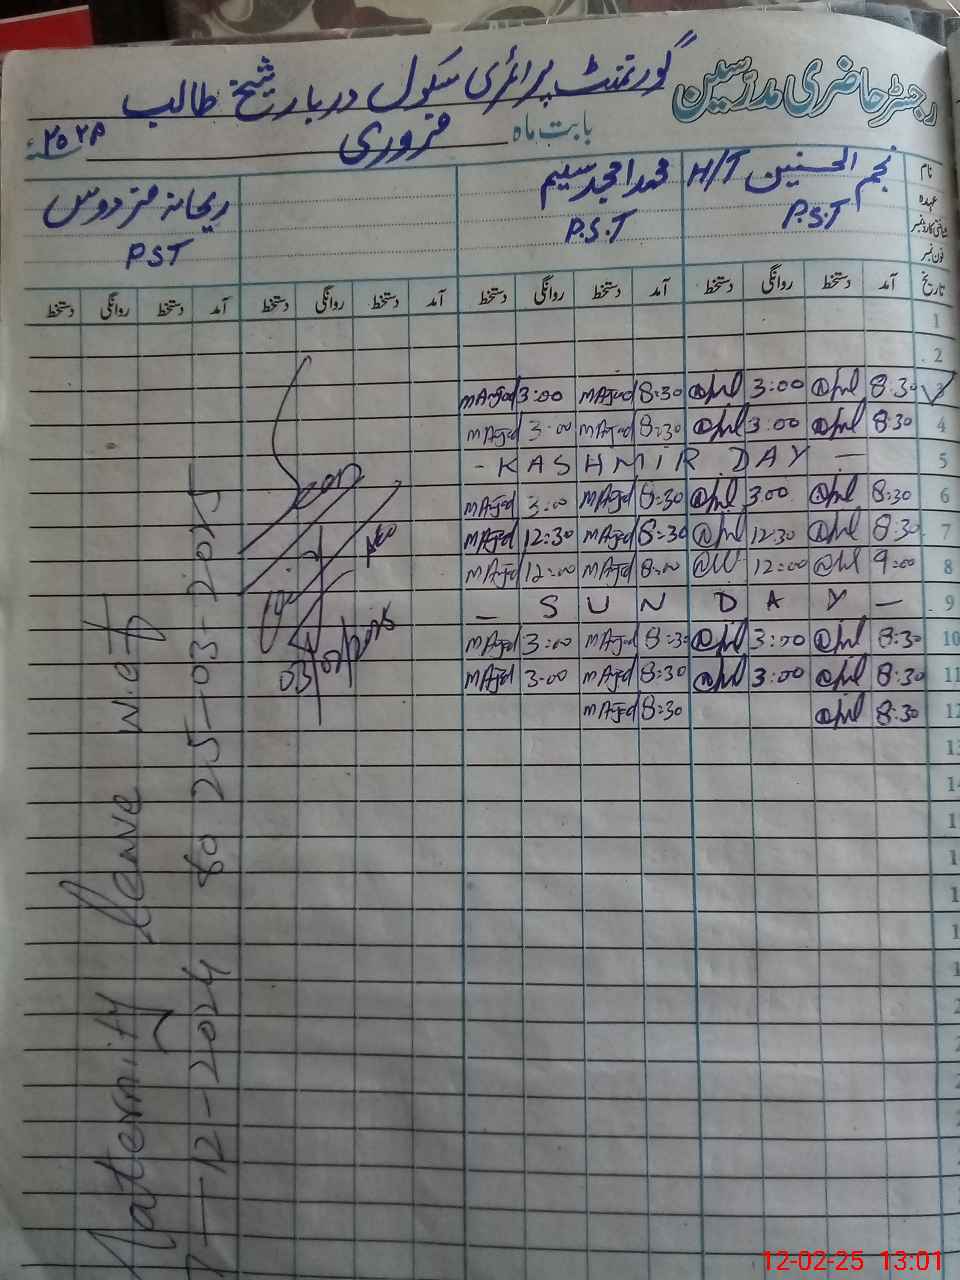 رجسٹر حاضری مدرسین
گورنمنٹ پرائمری سکول دربار شیخ طالب
بابت ماہ فروری
نام نجم الحسنین H/T محمد امجد سلیم ریحانہ فردوس
عہدہ P.S.T P.S.T PST
شناختی کارڈ نمبر
فون نمبر
تاریخ آمد دستخط روانگی دستخط آمد دستخط روانگی دستخط آمد دستخط روانگی دستخط آمد دستخط روانگی دستخط
1
2
3 8:30 3:00 8:30 mAjed 3:00 mAjed
4 8:30 3:00 8:30 mAjed 3:00 mAjed
5 - KASHMIR DAY -
6 8:30 3:00 8:30 mAjed 3:00 mAjed
7 8:30 12:30 8:30 mAjed 12:30 mAjed
8 9:00 12:00 8:00 mAjed 12:00 mAjed
9 - SUN DAY -
10 8:30 3:00 8:30 mAjed 3:00 mAjed
11 8:30 3:00 8:30 mAjed 3:00 mAjed
12 8:30 8:30 mAjed
Maternity leave w.e.f
-12-2024 to 25-03-2025
12-02-25 13:01